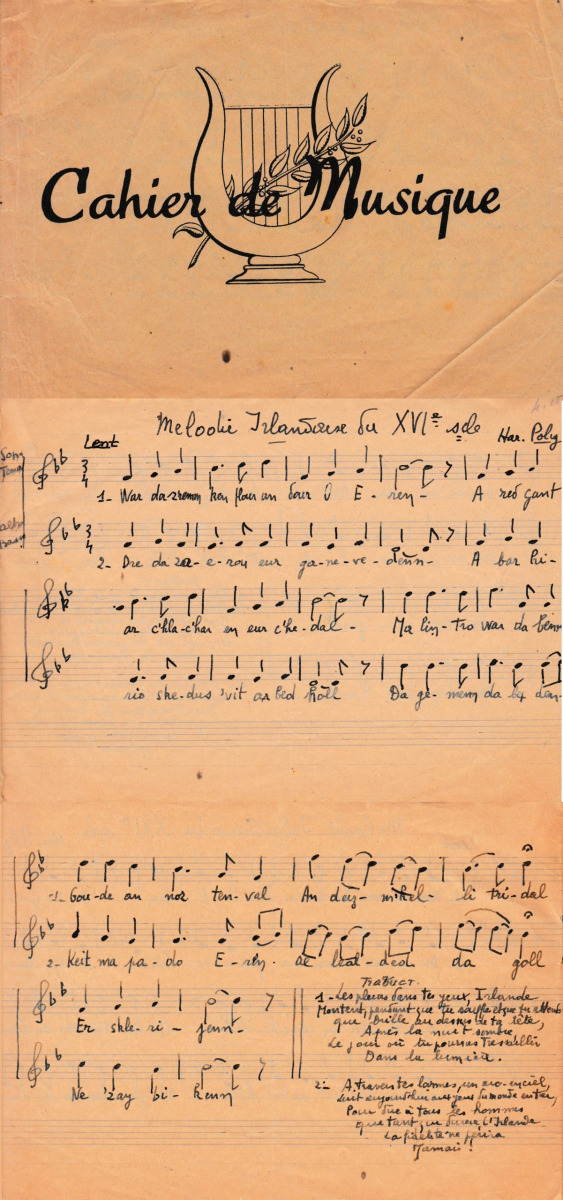 Cahier de Musique
Melodie Irlandaise du XVIe scle
Lent
Har. Poly
1- War da zremm ken flour an dour O E - ren - A red gant
2- Dre da zae-e-rou eur ga-ne-ve-denn- A bar hi-
ar c'hla-c'har en eur c'he-dal - Ma lin-tro war da benn
rio ske-dus 'vit ar bed holl Da ge-menn da
1- Gou-de an noz ten-val An deiz- li tri-dal
2- Keit ma pa-do E-rin. da goll
Er skle-ri-jenn-
Ne 'zay bi-kenn
Traduct.
1- Les pleurs dans tes yeux, Irlande
Montent, pendant que tu souffres et que tu attends
que brille au dessus de ta tête,
Après la nuit sombre,
Le jour où tu pourras tressaillir
Dans la lumière.
2- A travers tes larmes, un arc-en-ciel,
Luit aujourd'hui du monde entier,
Pour dire à tous les hommes
que tant que durera l'Irlande
La fidélité ne périra
Jamais !